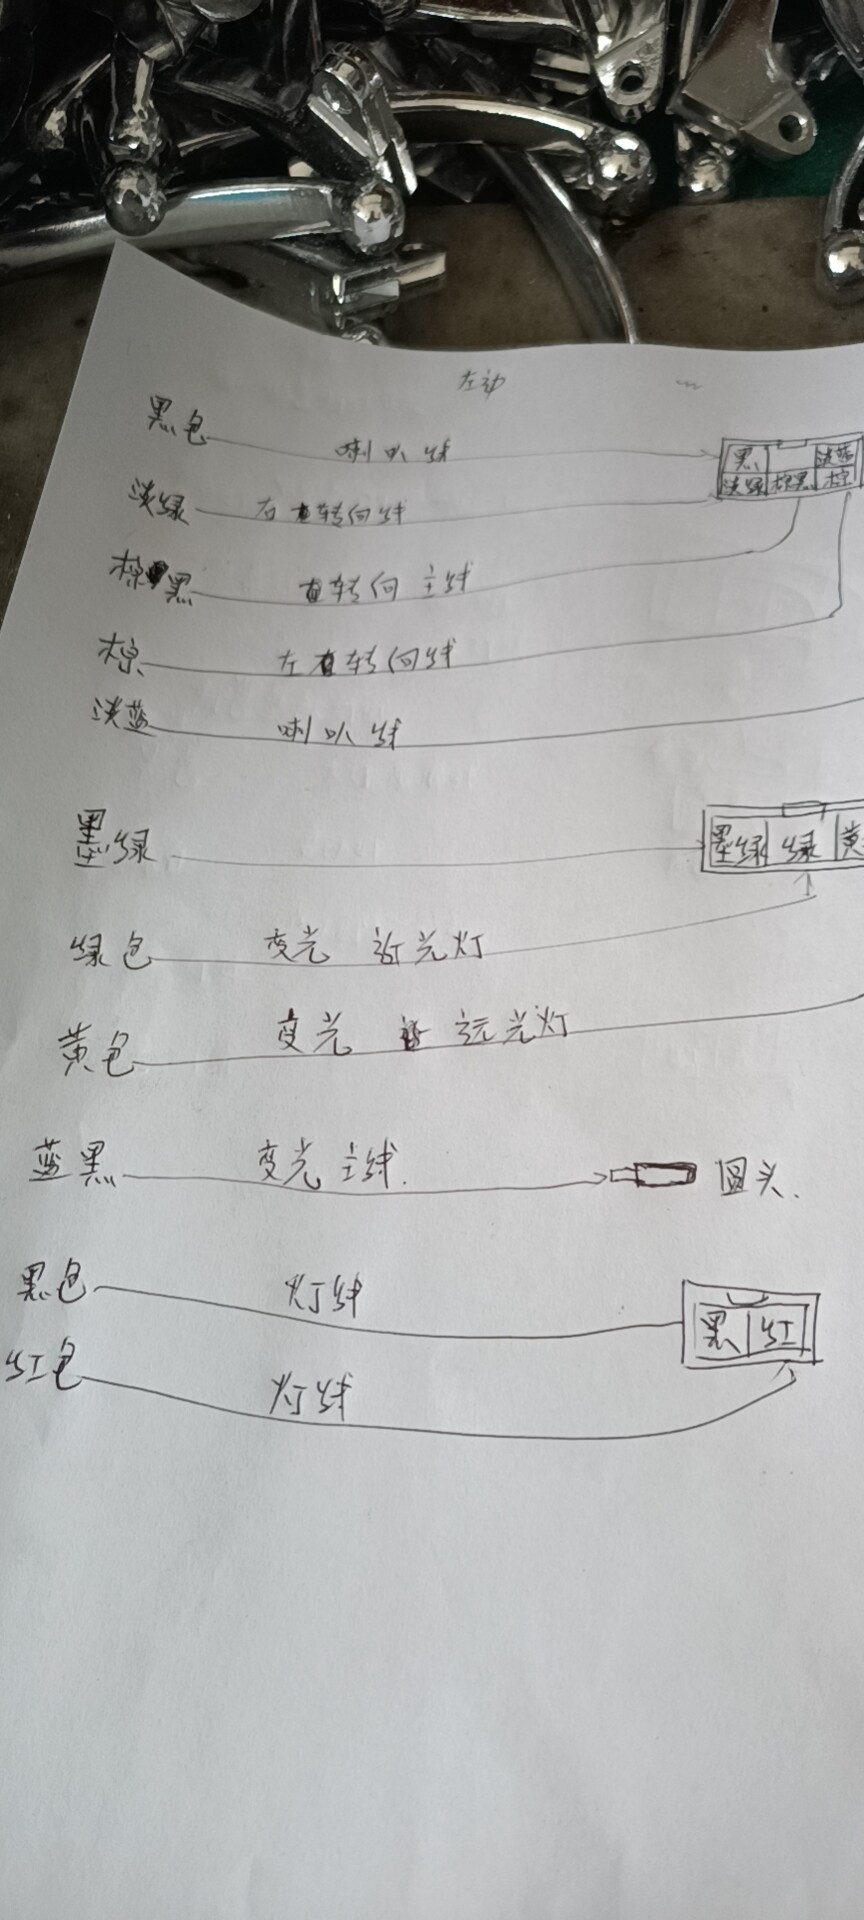 黑色 喇叭线
黑 淡蓝
淡绿 棕黑 棕
淡绿 右转向线
棕黑 转向主线
棕 左转向线
淡蓝 喇叭线
墨绿
墨绿 绿 黄
绿色 变光 近光灯
黄色 变光 远光灯
蓝黑 变光主线. 圆头.
黑色 灯线
黑 红
红色 灯线